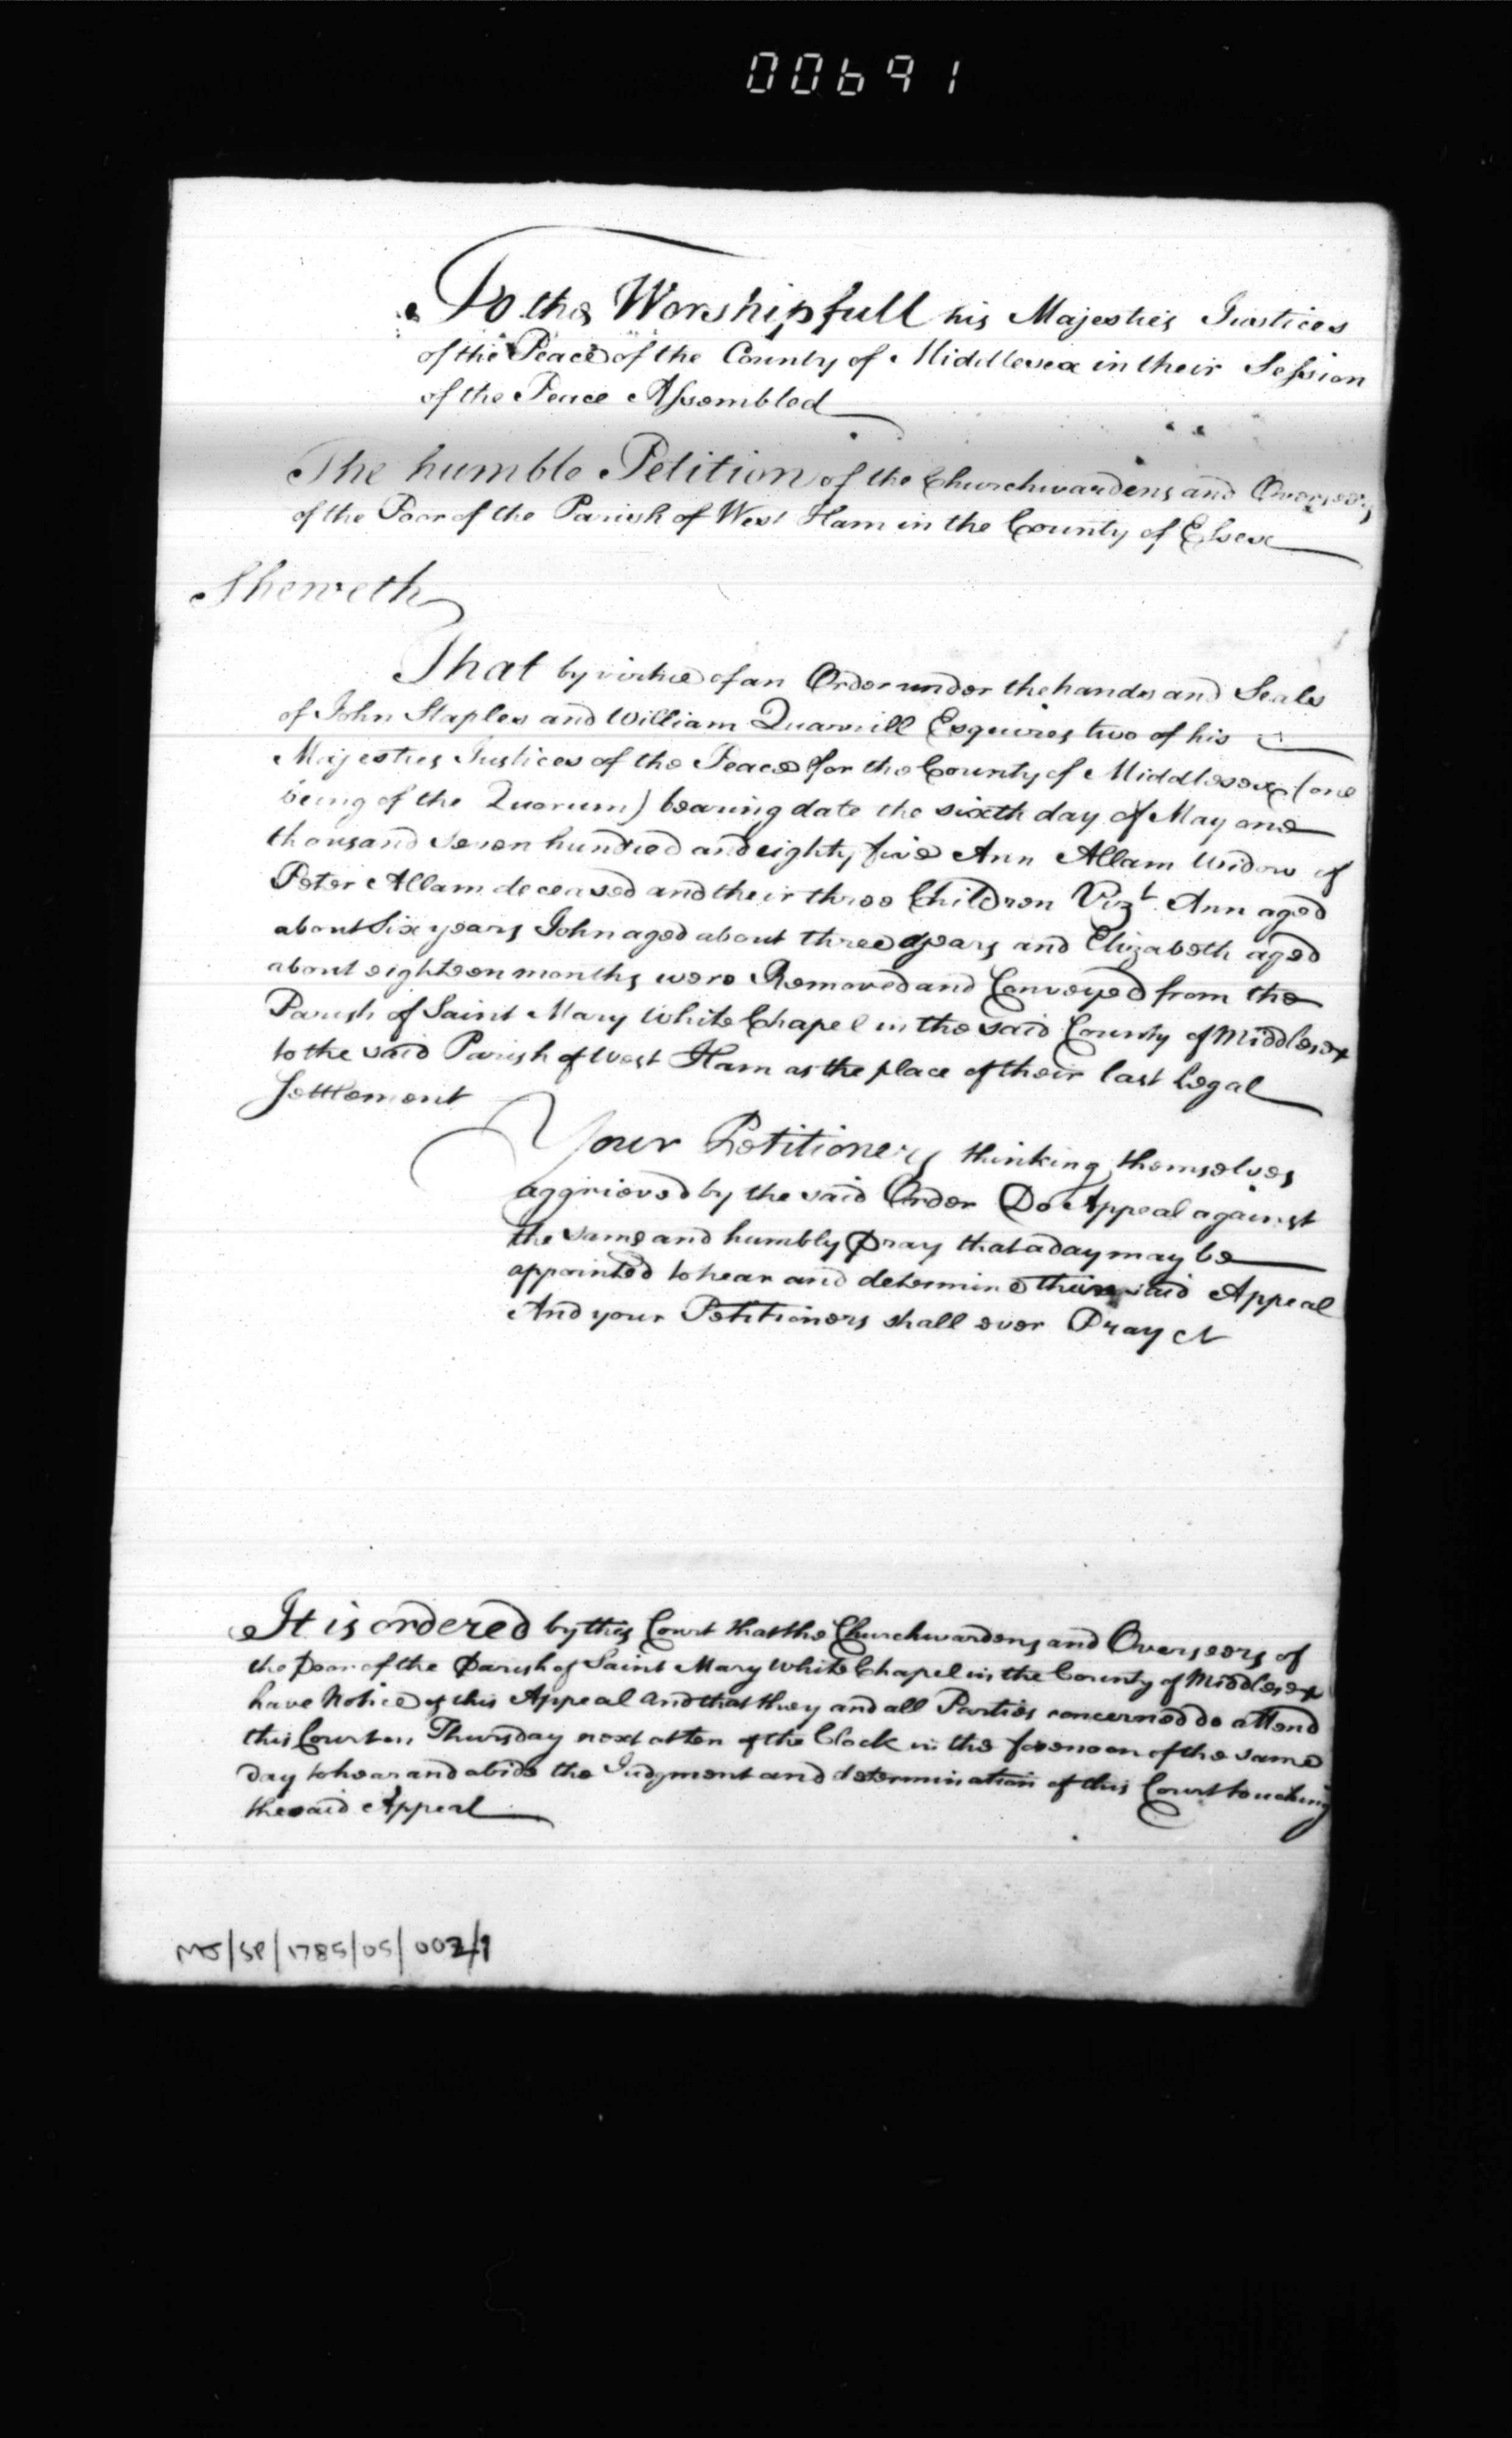 00691
To the Worshipfull his Majesties Justices
of the Peace of the County of Middlesex in their Session
of the Peace Assembled
The humble Petition of the Churchwardens and Overseers
of the Poor of the Parish of West Ham in the County of Essex
Sheweth
That by virtue of an Order under the hands and Seals
of John Staples and William Quarrill Esquires two of his
Majesties Justices of the Peace for the County of Middlesex (one
being of the Quorum) bearing date the sixth day of May one
thousand seven hundred and eighty five Ann Allam Widow of
Peter Allam deceased and their three Children Vizt. Ann aged
about Six years John aged about three years and Elizabeth aged
about eighteen months were Removed and Conveyed from the
Parish of Saint Mary White Chapel in the said County of Middlesex
to the said Parish of West Ham as the place of their last Legal
Settlement
Your Petitioners thinking themselves
aggrieved by the said Order Do Appeal against
the same and humbly Pray that a day may be
appointed to hear and determine their said Appeal
And your Petitioners shall ever Pray &c
It is ordered by this Court that the Churchwardens and Overseers of
the Poor of the Parish of Saint Mary White Chapel in the County of Middlesex
have Notice of this Appeal and that they and all Parties concerned do attend
this Court on Thursday next at ten of the Clock in the forenoon of the same
day to hear and abide the Judgment and determination of this Court touching
the said Appeal
MJ/SP/1785/05/002/1